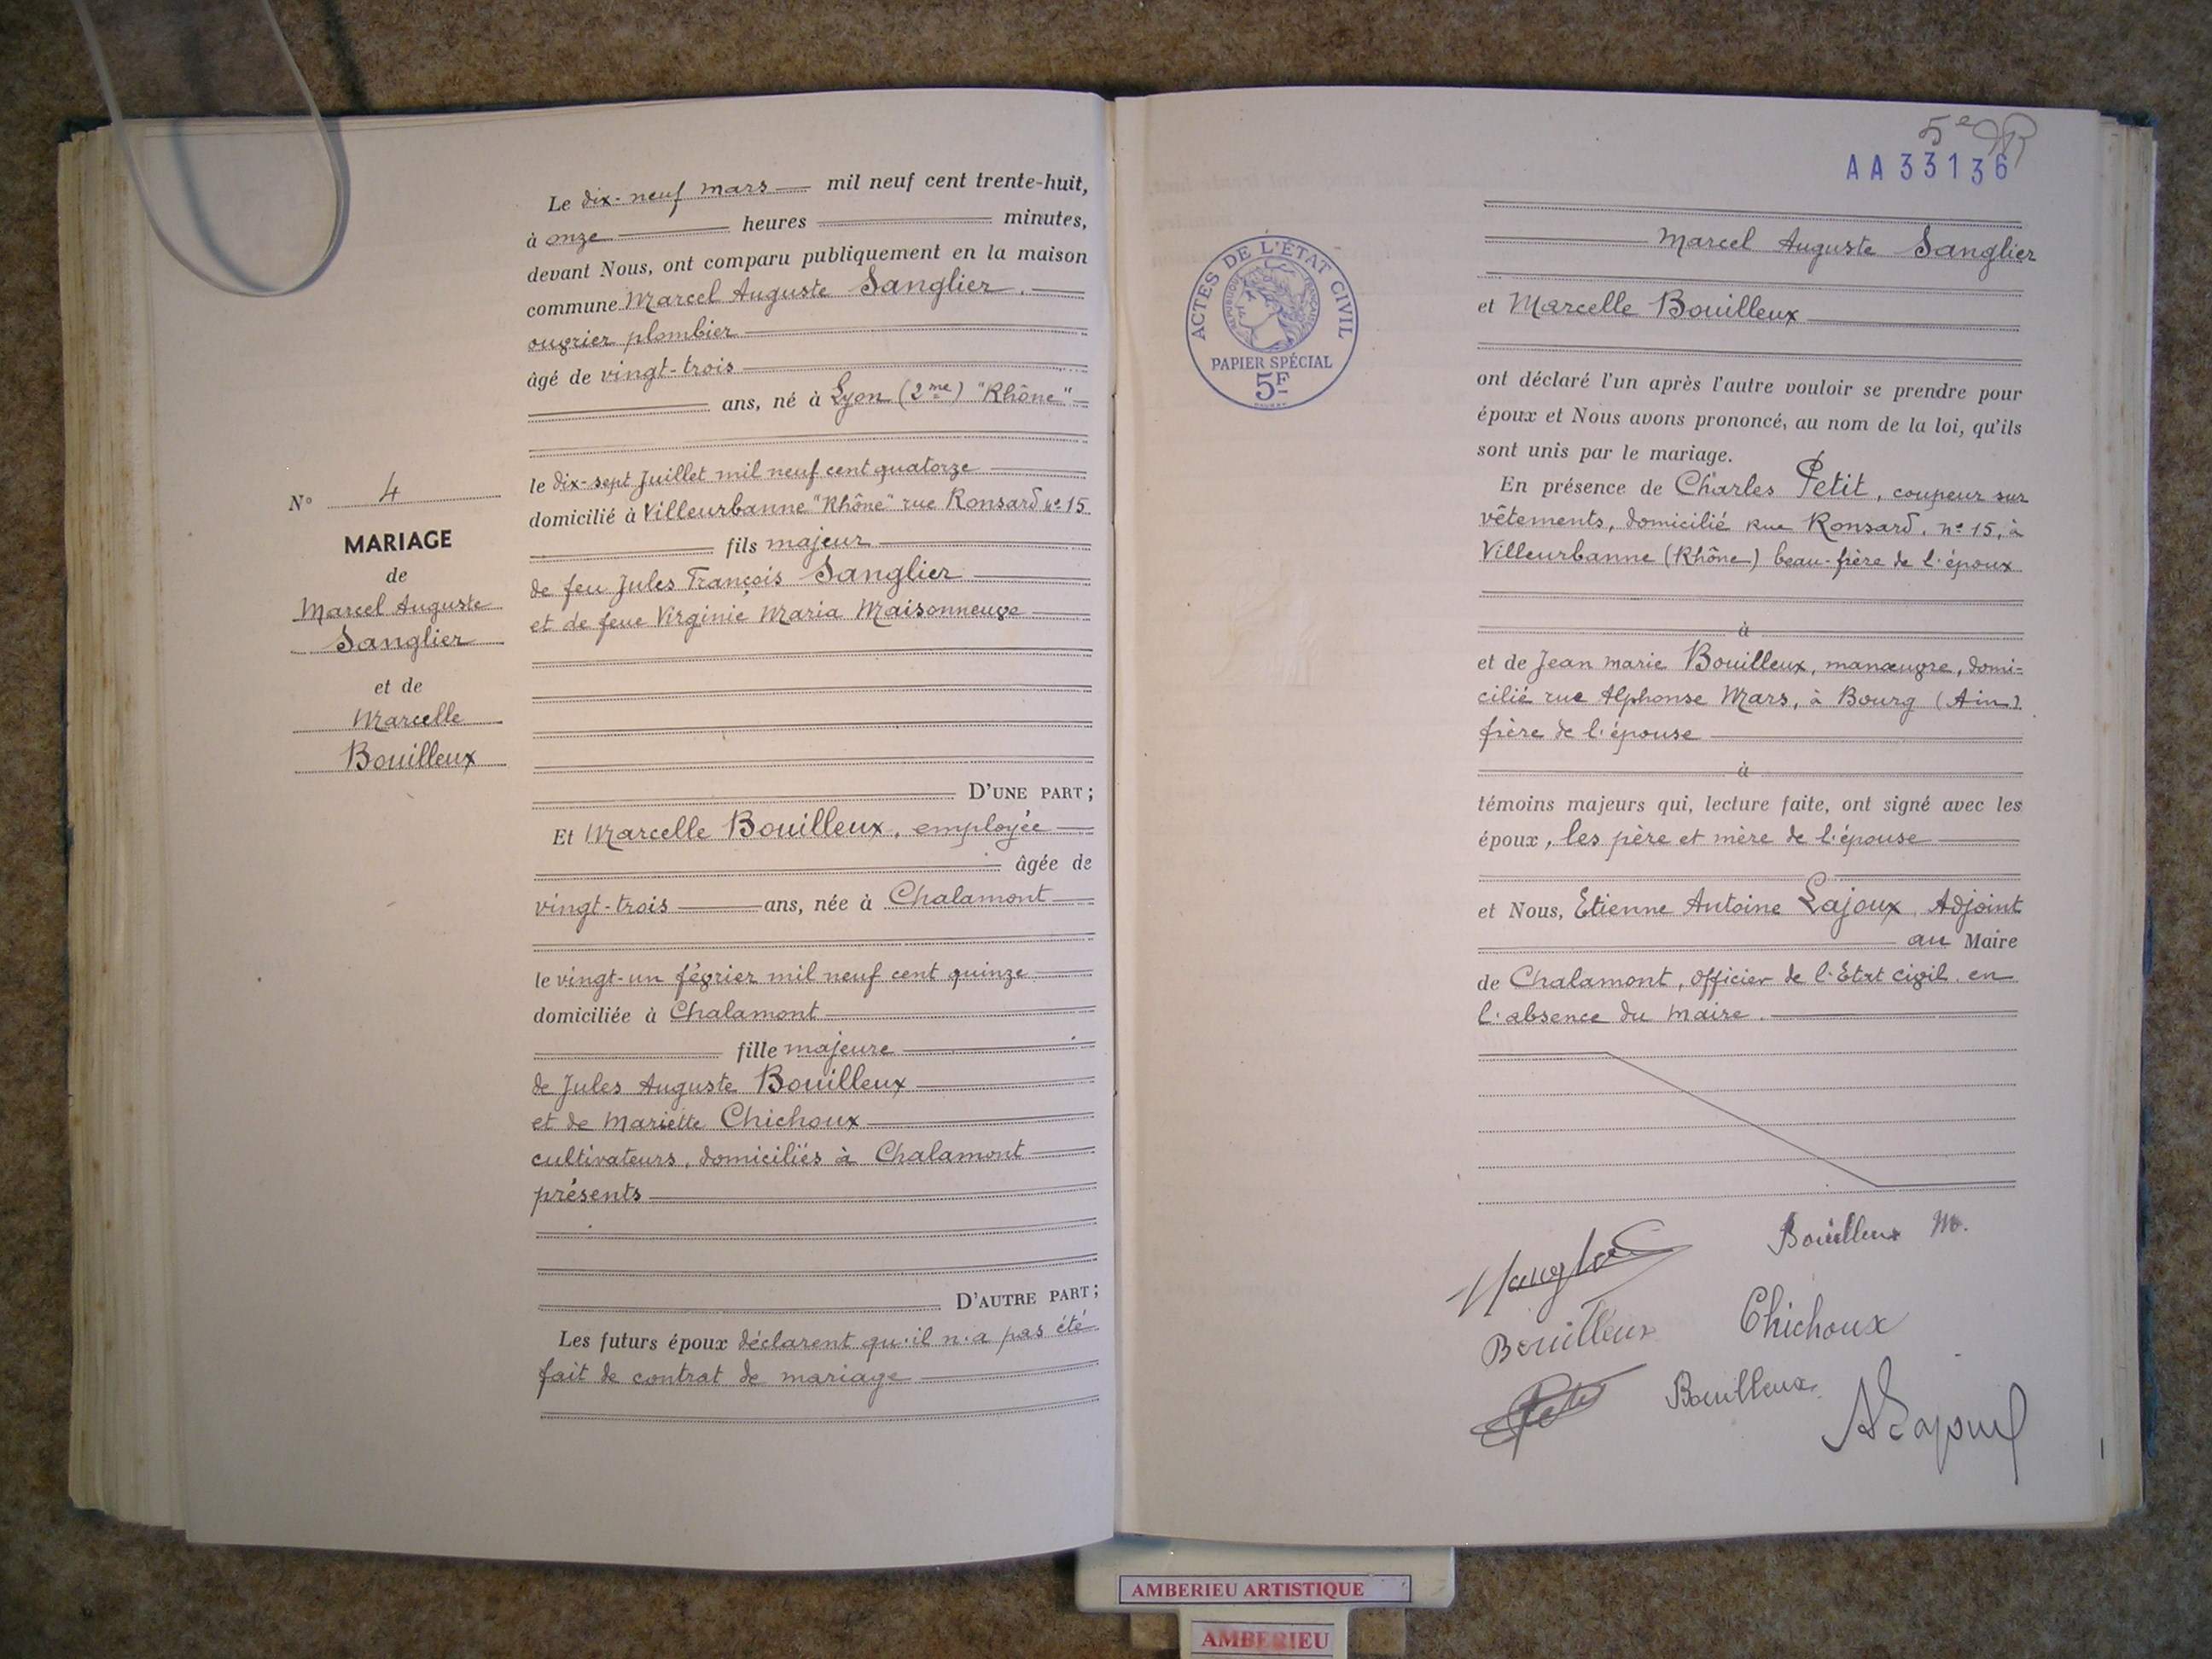 N° 4
MARIAGE
de
Marcel Auguste
Sanglier
et de
Marcelle
Bouilleux
Le dix-neuf mars mil neuf cent trente-huit,
à onze heures minutes,
devant Nous, ont comparu publiquement en la maison
commune Marcel Auguste Sanglier.
ouvrier plombier
âgé de vingt-trois
ans, né à Lyon (2me) "Rhône"
le dix-sept Juillet mil neuf cent quatorze
domicilié à Villeurbanne "Rhône" rue Ronsard n° 15
fils majeur
de feu Jules François Sanglier
et de feue Virginie Maria Maisonneuve
D'UNE PART;
Et Marcelle Bouilleux, employée
âgée de
vingt-trois ans, née à Chalamont
le vingt-un février mil neuf cent quinze
domiciliée à Chalamont
fille majeure
de Jules Auguste Bouilleux
et de Mariette Chichoux
cultivateurs, domiciliés à Chalamont
présents
D'AUTRE PART;
Les futurs époux déclarent qu'il n'a pas été
fait de contrat de mariage
5e
AA33136
ACTES DE L'ÉTAT CIVIL
RÉPUBLIQUE FRANÇAISE
PAPIER SPÉCIAL
5F
Marcel Auguste Sanglier
et Marcelle Bouilleux
ont déclaré l'un après l'autre vouloir se prendre pour
époux et Nous avons prononcé, au nom de la loi, qu'ils
sont unis par le mariage.
En présence de Charles Petit, coupeur sur
vêtements, domicilié rue Ronsard, n° 15, à
Villeurbanne (Rhône) beau-frère de l'époux
à
et de Jean marie Bouilleux, manœuvre, domi=
cilié rue Alphonse Mars, à Bourg (Ain)
frère de l'épouse
à
témoins majeurs qui, lecture faite, ont signé avec les
époux, les père et mère de l'épouse
et Nous, Etienne Antoine Lajoux, Adjoint
au Maire
de Chalamont, officier de l'Etat civil en
l'absence du maire.
Bouilleux M.
Bouilleux
Chichoux
Petit
Bouilleux
ALajoux
AMBERIEU ARTISTIQUE
AMBERIEU